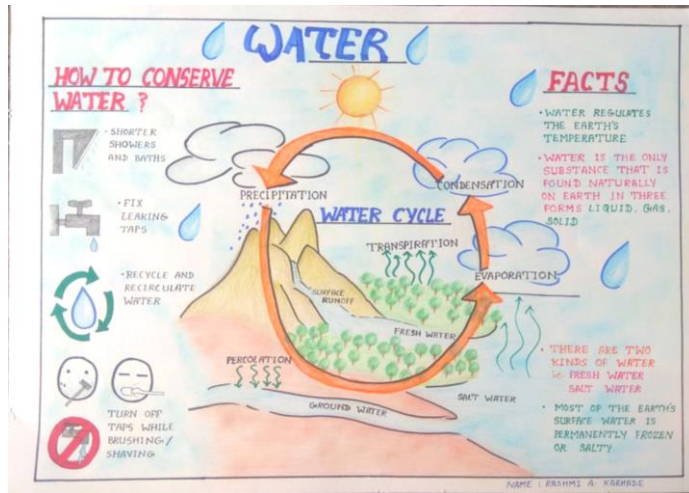 WATER
HOW TO CONSERVE
WATER ?
• SHORTER
SHOWERS
AND BATHS
• FIX
LEAKING
TAPS
• RECYCLE AND
RECIRCULATE
WATER
TURN OFF
TAPS WHILE
BRUSHING/
SHAVING
PRECIPITATION
CONDENSATION
WATER CYCLE
TRANSPIRATION
EVAPORATION
SURFACE
RUNOFF
FRESH WATER
PERCOLATION
SALT WATER
GROUND WATER
FACTS
• WATER REGULATES
THE EARTH'S
TEMPERATURE
• WATER IS THE ONLY
SUBSTANCE THAT IS
FOUND NATURALLY
ON EARTH IN THREE
FORMS LIQUID, GAS,
SOLID
• THERE ARE TWO
KINDS OF WATER
FRESH WATER
SALT WATER
• MOST OF THE EARTH'S
SURFACE WATER IS
PERMANENTLY FROZEN
OR SALTY
NAME : RASHMI A. KARHADE